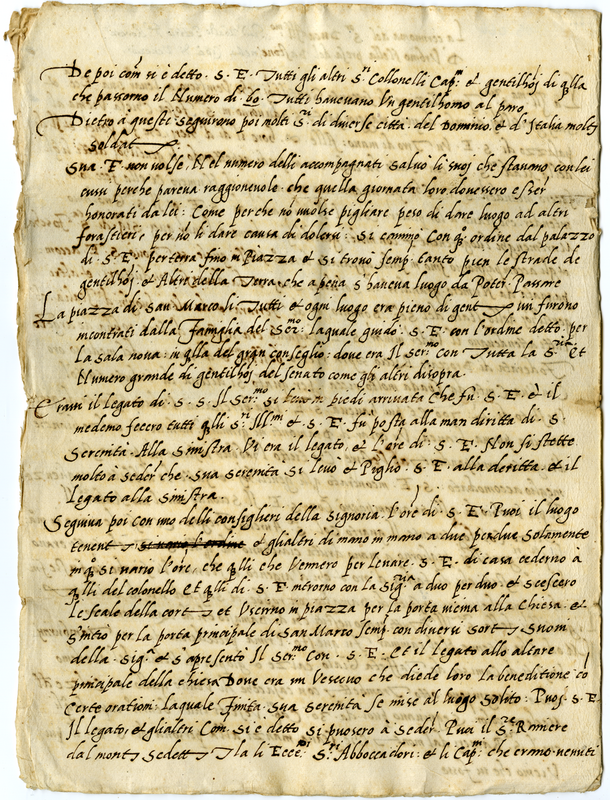 De poi com si è detto. S. E. Tutti gli altri Sri Collonelli Capni et gentilhoj di qlla
che passorno il Numero di 60. Tutti havevano Un gentilhomo al paro
Dietro à questi seguirono poi molti Sri di diverse città del Dominio, et d'Italia molti
soldati
Sua. E. non volse Nel numero delli accompagnati salvo li suoi che stavano con lei
cussi perche pareva raggionevole che quella giornata loro dovessero esser
honorati da lei: Come perche nò vuolse pigliare peso di dare luogo ad altri
forastieri, per nò li dare causa di dolersi: Si caminò Con qo ordine dal palazzo
di S. E. per terra fino in Piazza et si trovò semp tanto pien le strade de
gentilhoj et Altri della Terra, che apena s haveva luogo da Poter Passare
La piazza di San Marco li Tutti et ogni luogo era pieno di gente ivi furono
incontrati dalla Famiglia del Sermo laquale guidò. S. E. con l'ordine detto per
la sala nova: in qlla del gran conseglio: dove era Il Sermo con Tutta la Sria Et
Numero grande di gentilhoj del senato come gli altri disopra.
Eravi il legato di S. S. Il Sermo si in piedi arrivata Che fù S. E. è il
medemo fecero tutti qlli Sri Illmi et S. E. fù posta alla man diritta di S.
Serenità Alla sinistra Vi era il legato, et l'ore di S. E. Non si stette
molto à seder che Sua serenità si levo et Piglio S. E. alla deritta et il
Legato alla sinistra.
Seguiva poi con uno delli consiglieri della signoria l'ore di S. E. Puoi il luogo
tenent et glialtri di mano in mano a due per due solamente
in qo si variò l'ore, che qlli che Vennero per Levare S. E. di casa cederno à
qlli del colonello Et qlli di S. E. introrno con la Sigria a duo per duo et scescero
le scale della corte et Uscirno in piazza per la porta vicina alla Chiesa et
s'intrò per la porta principale di San Marco semp con diversi sorti suoni
della Siga et s apresentò Il Sermo Con S. E. Et il legato allo altare
principale della chiesa Dove era un Vescovo che diede loro la beneditione cò
Certe orationi: laquale finita Sua Serenità se mise al luogo solito: Puoj S. E.
Il legato, et glialtri Com si è detto si puosero à seder. Puoi il Sre Raniere
dal monte sedette Tra li Eccmi Sri Abboccadori et li Capni che erano venuti